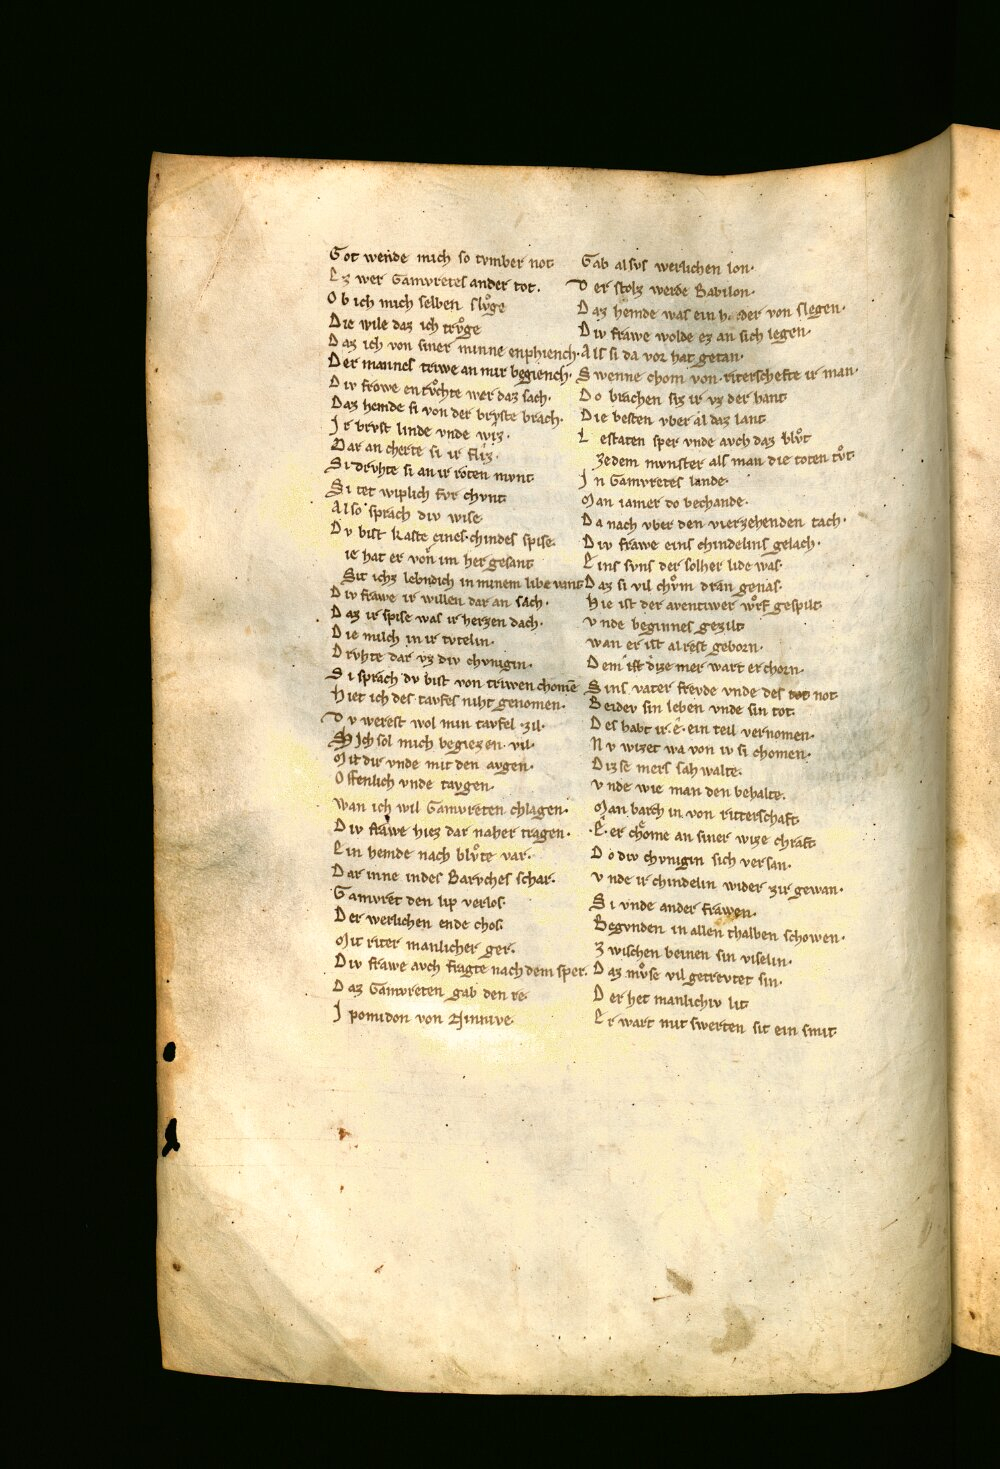 Got wende mich so tvmber not
Ez wer Gamvretes ander tot.
Ob ich mich selben slvͦge
Die wile daz ich trvͦge
Daz ich von siner minne enphiench.
Der mannes triwe an mir begiench.
Div frowe en rvͦchte wer daz sach.
Daz hemde si von der brvste brach.
Ir brvst linde vnde wiz.
Dar an cherte si ir fliz.
Si drvhte si an ir roten mvnt
Si tet wiplich fvr chvnt
Also sprach div wise
Dv bist kaste eines chindes spise.
ie hat er von im her gesant
Sit ichz lebndich in minem libe vant
Div frawe ir willen dar an sach.
Daz ir spise was ir herzen dach.
Die milch in ir tvtelin.
Drvhte dar vz div chvnigin.
Si sprach dv bist von triwen chomē
Hiet ich des tavfes niht genomen.
Dv werest wol min tavfes zil.
Ich sol mich begiezen vil.
Mit dir vnde mit den avgen.
Offenlich vnde tavgen.
wan ich wil Gamvreten chlagen.
Div frawe hiez dar naher tragen.
Ein hemde nach blvͦte var.
Dar inne indes Barvches schar.
Gamvret den lip verlos.
Der werlichen ende chos.
Mit riter manlicher ger.
Div frawe avch fragte nach dem sper.
Daz Gamvreten gab den re
Ipomidon von Ninnive.
Gab alsvs werlichen lon.
Der stolz werde Babilon.
Daz hemde was ein der von slegen.
Div frawe wolde ez an sich legen.
Als si da vor hat getan.
Swenne chom von riterschefte ir man.
Do brachen siz ir vz der hant
Die besten vber al daz lant
Estaten sper vnde avch daz blvͦt
zedem mvnster als man die toten tvͦt
In Gamvretes lande.
Man iamer do bechande.
Da nach vber den vierzehenden tach.
Div frawe eins chindelins gelach.
Eins svns der solher lide was.
Daz si vil chvͦm dran genas.
Hie ist der aventiwer wͦrf gespilt
vnde beginnes gezilt
wan er ist alrest geborn.
Dem ist dize mer wart erchorn.
Sins vater frevde vnde des tot not
Beidev sin leben vnde sin tot.
Des habt ir. ê. ein teil vernomen.
Nv wizet wa von iv si chomen.
Dizse mers sah walte.
vnde wie man den behalte.
Man barch in von ritterschaft
.E. er chͦome an siner wize chraft
Do div chvnigin sich versan.
vnde ir chindelin wider zir gewan.
Si vnde ander frawen.
Begvnden in allen thalben schowen.
Zwischen beinen sin viselin.
Daz mvͦse vil getrevtet sin.
Der het manlichiv lit
Er wart mit swerten sit ein smit